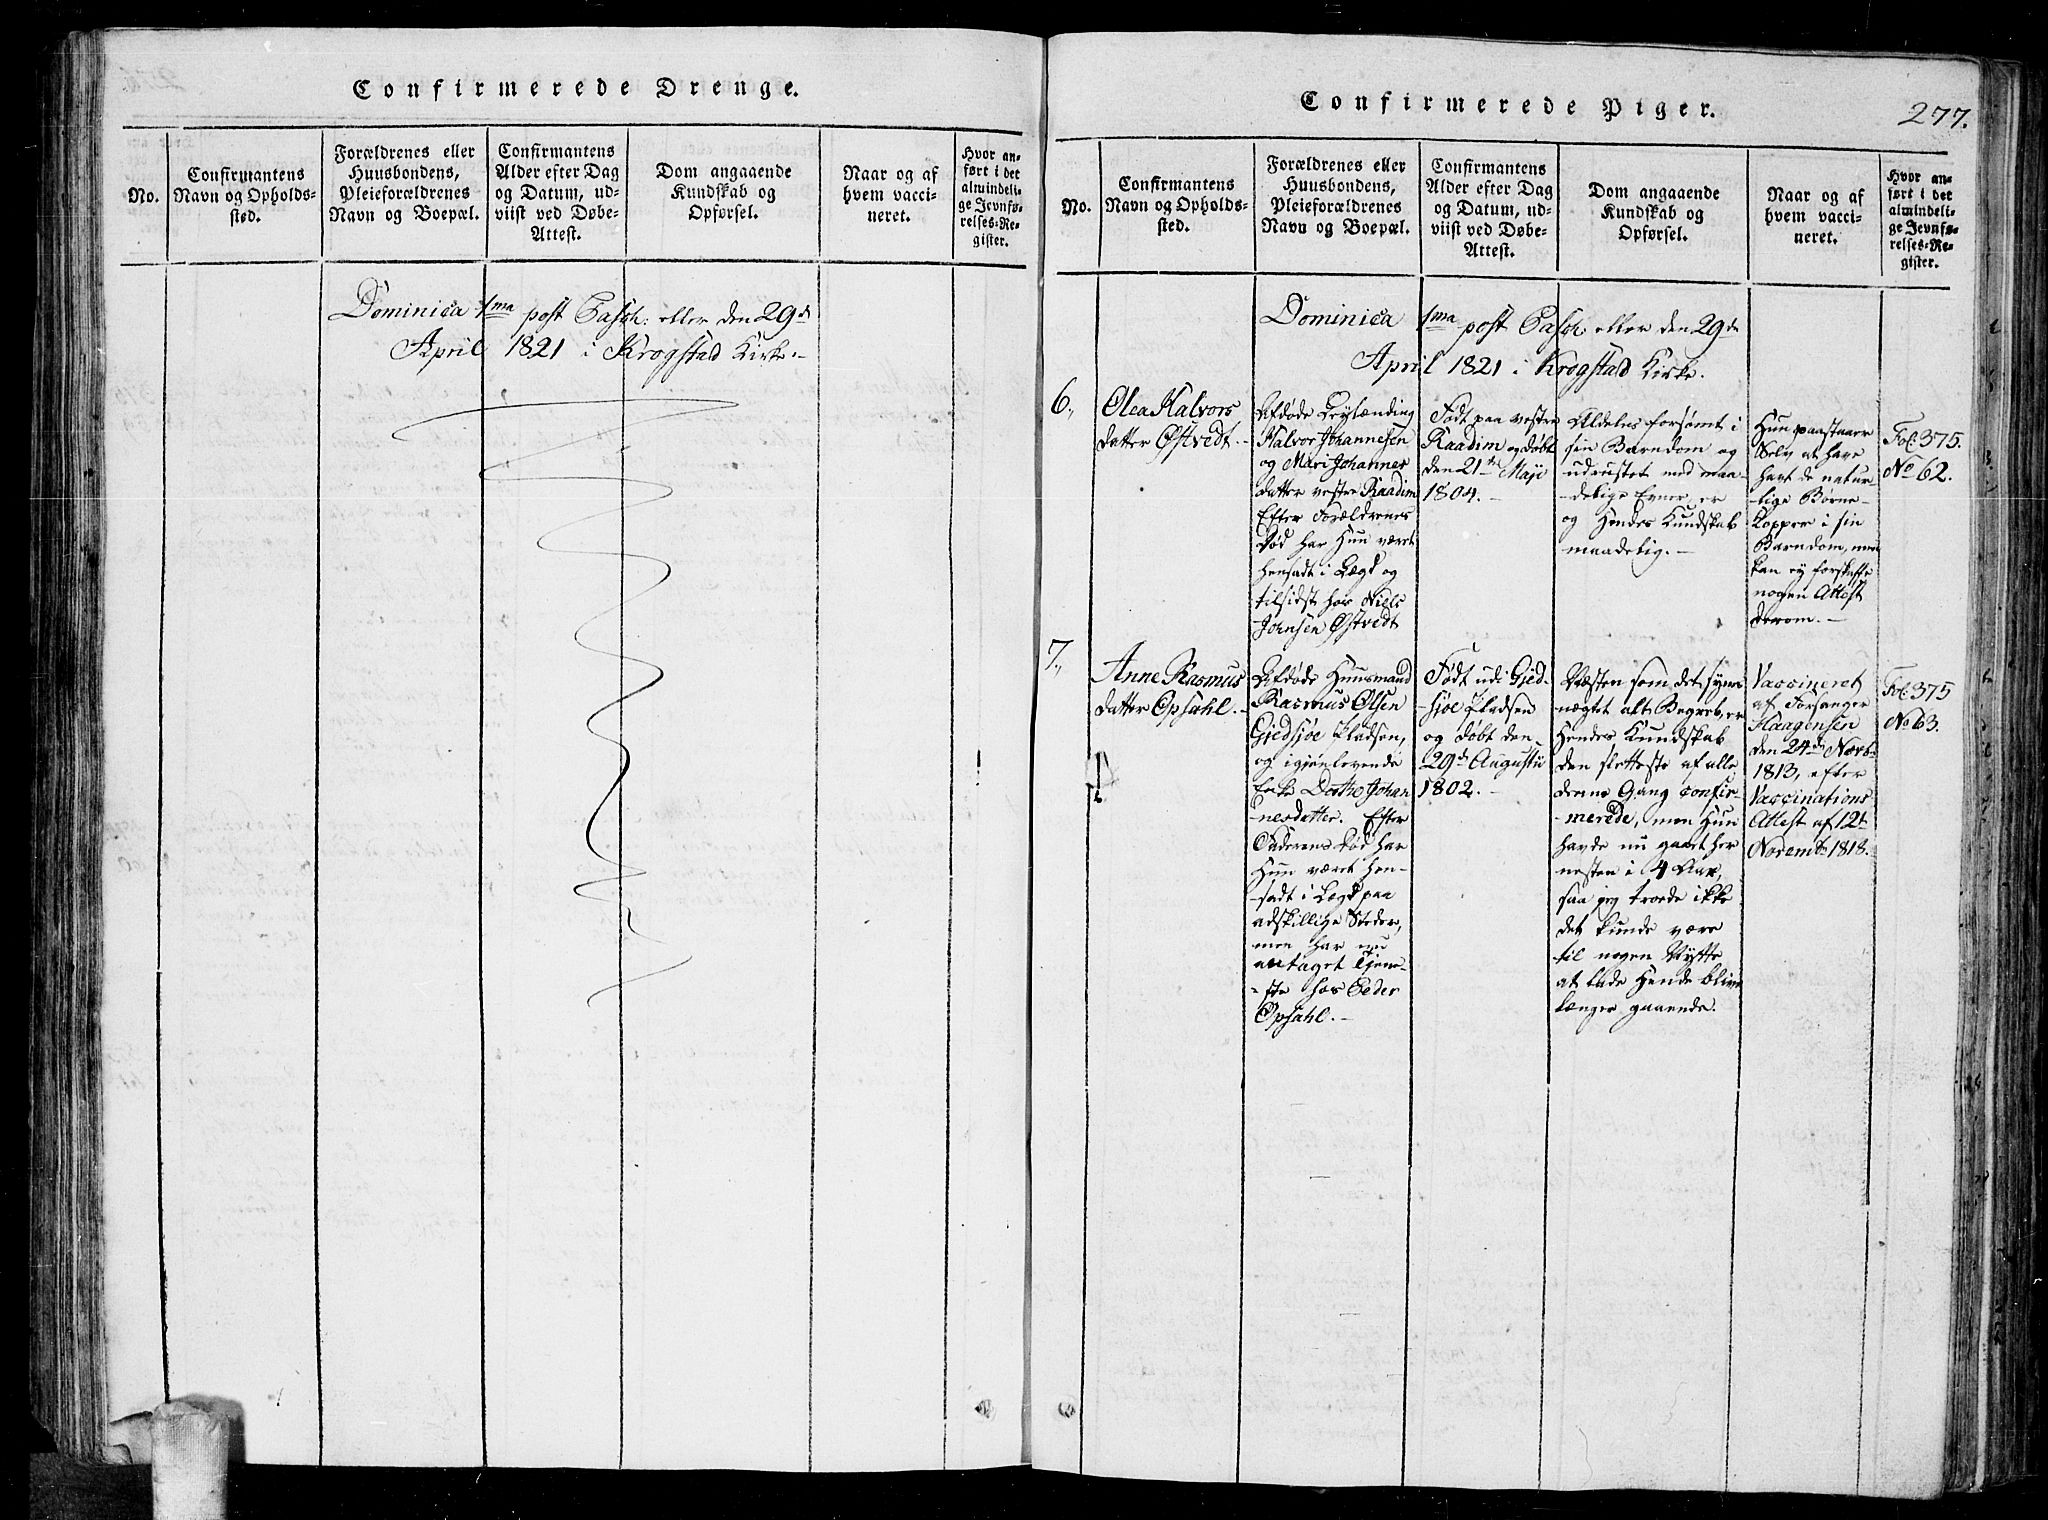 Confirmerede Drenge.
No.
Confirmantens
Navn og Opholds-
sted.
Forældrenes eller
Huusbondens,
Pleieforældrenes
Navn og Boepæl.
Confirmantens
Alder efter Dag
og Datum, ud-
viist ved Døbe-
Attest.
Dom angaaende
Kundskab og
Opførsel.
Naar og af
hvem vacci-
neret.
Hvor an-
ført i det
almindeli-
ge Jevnfø-
relses-Re-
gister.
Dominica 1ma post Pasch: eller den 29de
April 1821 i Krogstad Kirke:-
Confirmerede Piger.
277.
No.
Confirmantens
Navn og Opholds-
sted.
Forældrenes eller
Huusbondens,
Pleieforældrenes
Navn og Boepæl.
Confirmantens
Alder efter Dag
og Datum, ud-
viist ved Døbe-
Attest.
Dom angaaende
Kundskab og
Opførsel.
Naar og af
hvem vacci-
neret.
Hvor an-
ført i det
almindeli-
ge Jevnfø-
relses-Re-
gister.
Dominica 1ma post Pasch eller den 29de
April 1821 i Krogstad Kirke.
6.,
Olea Halvors
datter Østvedt.-
Afdøde Leylænding
Halvor Johannesen
og Mari Johannes
datter vestre Raadim
Efter Forældrenes
Død har Hun været
hensadt i Lægd og
tilsidst hos Niels
Jørnsen Østvedt
Født paa vestre
Raadim og døbt
den 21de Maji
1804.-
Aldeles forsømt i
sin Barndom og
udrustet med maa-
delige Evner, er
og Hendes Kundskab
maadelig.-
Hun paastaar
Selv at have
havt de natur
-lige Børne-
kopper i sin
Barndom, men
kan ey forskaffe
nogen Attest
derom.-
Fol: 375.
No 62.
7.,
Anne Rasmus
datter Opsahl.-
Afdøde Huusmand
Rasmus Olsen
Giedsjøe Pladsen,
og igjenlevende
Enke Dorthe Johan
nesdatter. Efter
Faderens Død har
Hun været hen-
sadt i Lægd paa
adskillige Steder,
men har nu
antaget Tjene-
-ste hos Peder
Opsahl.-
Født udi Gied-
-sjøe Pladsen
og døbt den
29de Augustii
1802.-
Næsten som det synes
nægtet alt Begreb, er
Hendes Kundskab
den sletteste af alle
denne Gang confir
-merede, men Hun
havde nu gaaet her
nesten i 4 Aar,
saa jeg troede ikke
det kunde være
til nogen Nytte
at lade Hende blive
længer gaaende.
Vaccineret
af Forsanger
Haagensen
den 24de Novbr
1813, efter
Vaccinations
Attest af 12te
Novembr 1818.
Fol: 375
No 63.